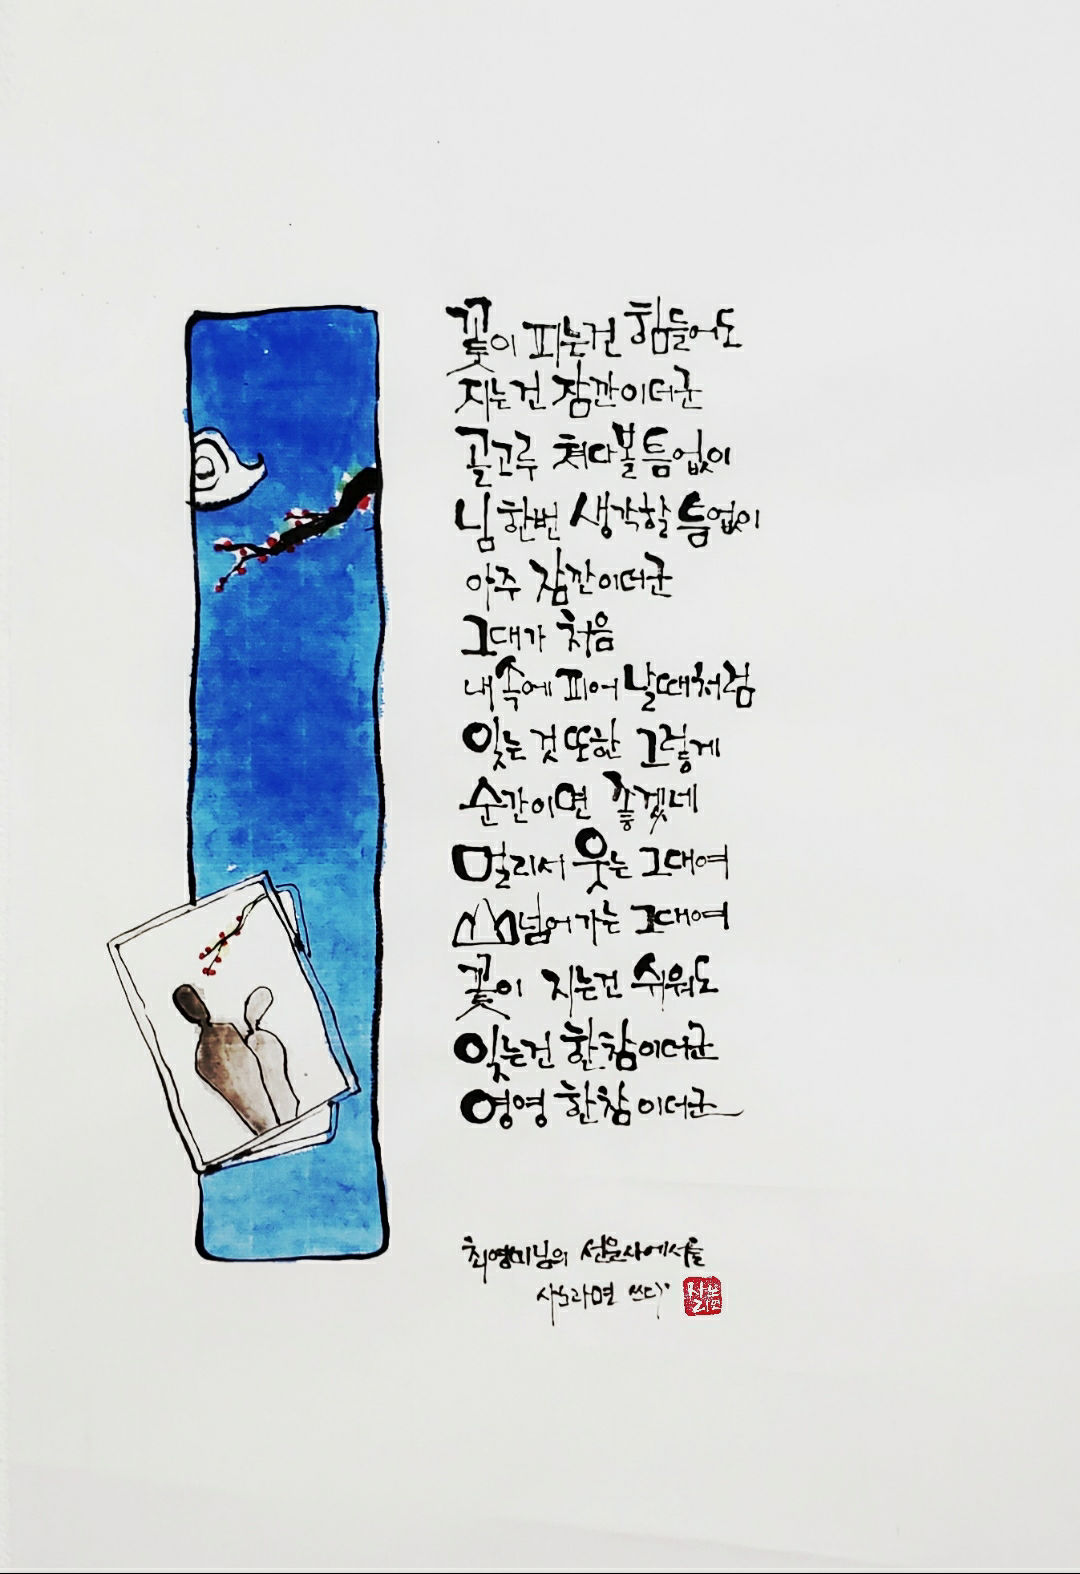 꽃이 피는건 힘들어도
지는건 잠깐이더군
골고루 쳐다볼 틈 없이
님 한번 생각할 틈 없이
아주 잠깐이더군
그대가 처음
내 속에 피어 날때처럼
잊는 것 또한 그렇게
순간이면 좋겠네
멀리서 웃는 그대여
산 넘어가는 그대여
꽃이 지는건 쉬워도
잊는건 한참이더군
영영 한참이더군
최영미님의 선운사에서를
사노라면 쓰다
사노라면